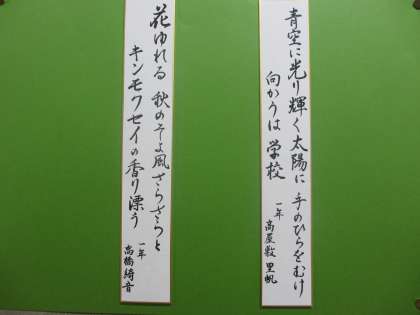 青空に光り輝く太陽に 手のひらをむけ
向かうは 学校
一年 高屋敷 里帆
花ゆれる 秋のそよ風 さらさらと
キンモクセイの香り漂う
一年 高橋 綺音